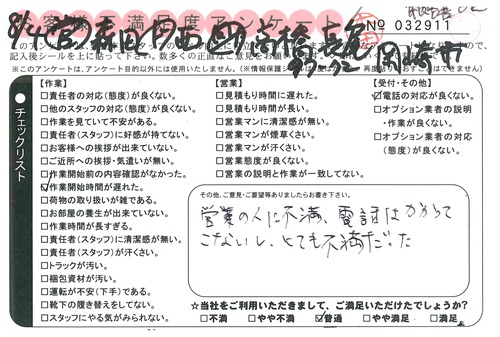 お客様不満足度アンケート
№ 032911
記入後シールを上に貼って下さい。
※このアンケートは、アンケート目的以外には使用いたしません。
岡崎市
チェックリスト
【作業】
□責任者の対応(態度)が良くない。
□他のスタッフの対応(態度)が良くない。
□作業を見ていて不安がある。
□責任者(スタッフ)に好感が持てない。
□お客様への挨拶が出来ていない。
□ご近所への挨拶・気遣いが無い。
□作業開始前の内容確認がなかった。
☑作業開始時間が遅れた。
□荷物の取り扱いが雑である。
□お部屋の養生が出来ていない。
□作業時間が長すぎる。
□責任者(スタッフ)に清潔感が無い。
□責任者(スタッフ)が汗くさい。
□トラックが汚い。
□梱包資材が汚い。
□運転が不安(下手)である。
□靴下の履き替えをしてない。
□スタッフにやる気がみられない。
【営業】
□見積もり時間に遅れた。
□見積もり時間が長い。
□営業マンに清潔感が無い。
□営業マンが煙草くさい。
□営業マンが汗くさい。
□営業態度が良くない。
□営業の説明と作業が一致してない。
【受付・その他】
☑電話の対応が良くない。
□オプション業者の説明
・作業が良くない。
□オプション業者の対応
(態度)が良くない。
その他、ご意見・ご要望等ありましたらお書き下さい。
営業の人に不満、電話はかかって
こないし、とても不満だった
☆当社をご利用いただきまして、ご満足いただけたでしょうか?
□不満 □やや不満 ☑普通 □やや満足 □満足